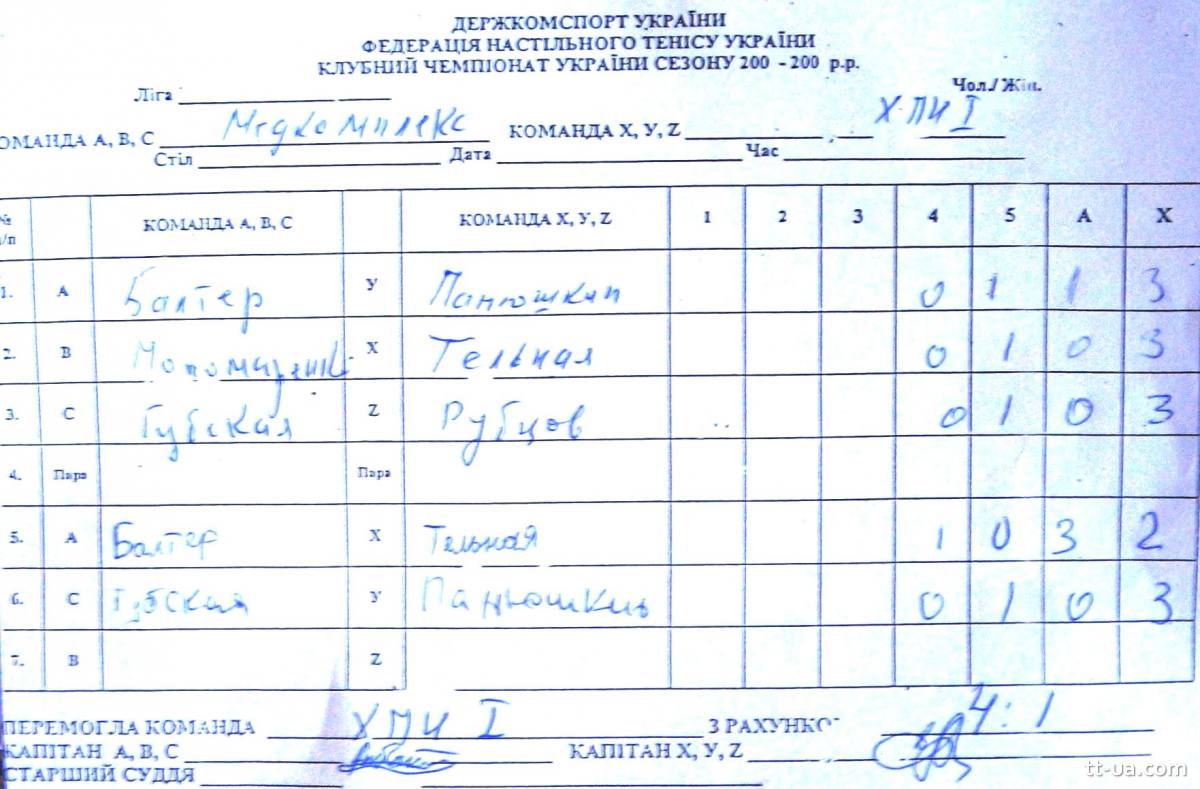 ДЕРЖКОМСПОРТ УКРАЇНИ
ФЕДЕРАЦІЯ НАСТІЛЬНОГО ТЕНІСУ УКРАЇНИ
КЛУБНИЙ ЧЕМПІОНАТ УКРАЇНИ СЕЗОНУ 200 - 200 р.р.
Ліга Чол./ Жін.
ОМАНДА А, В, С Медкомплекс КОМАНДА Х, У, Z Х ПИ I
Стіл Дата Час
№ /п КОМАНДА А, В, С КОМАНДА Х, У, Z 1 2 3 4 5 А Х
1. А Балтер У Панюшкин 0 1 1 3
2. В Х Тельная 0 1 0 3
3. С Губская Z Рубцов 0 1 0 3
4. Пара Пара
5. А Балтер Х Тельная 1 0 3 2
6. С Губская У Панюшкин 0 1 0 3
7. В Z
ПЕРЕМОГЛА КОМАНДА ХПИ I З РАХУНКО 4:1
КАПІТАН А, В, С КАПІТАН Х, У, Z
СТАРШИЙ СУДДЯ
tt-ua.com